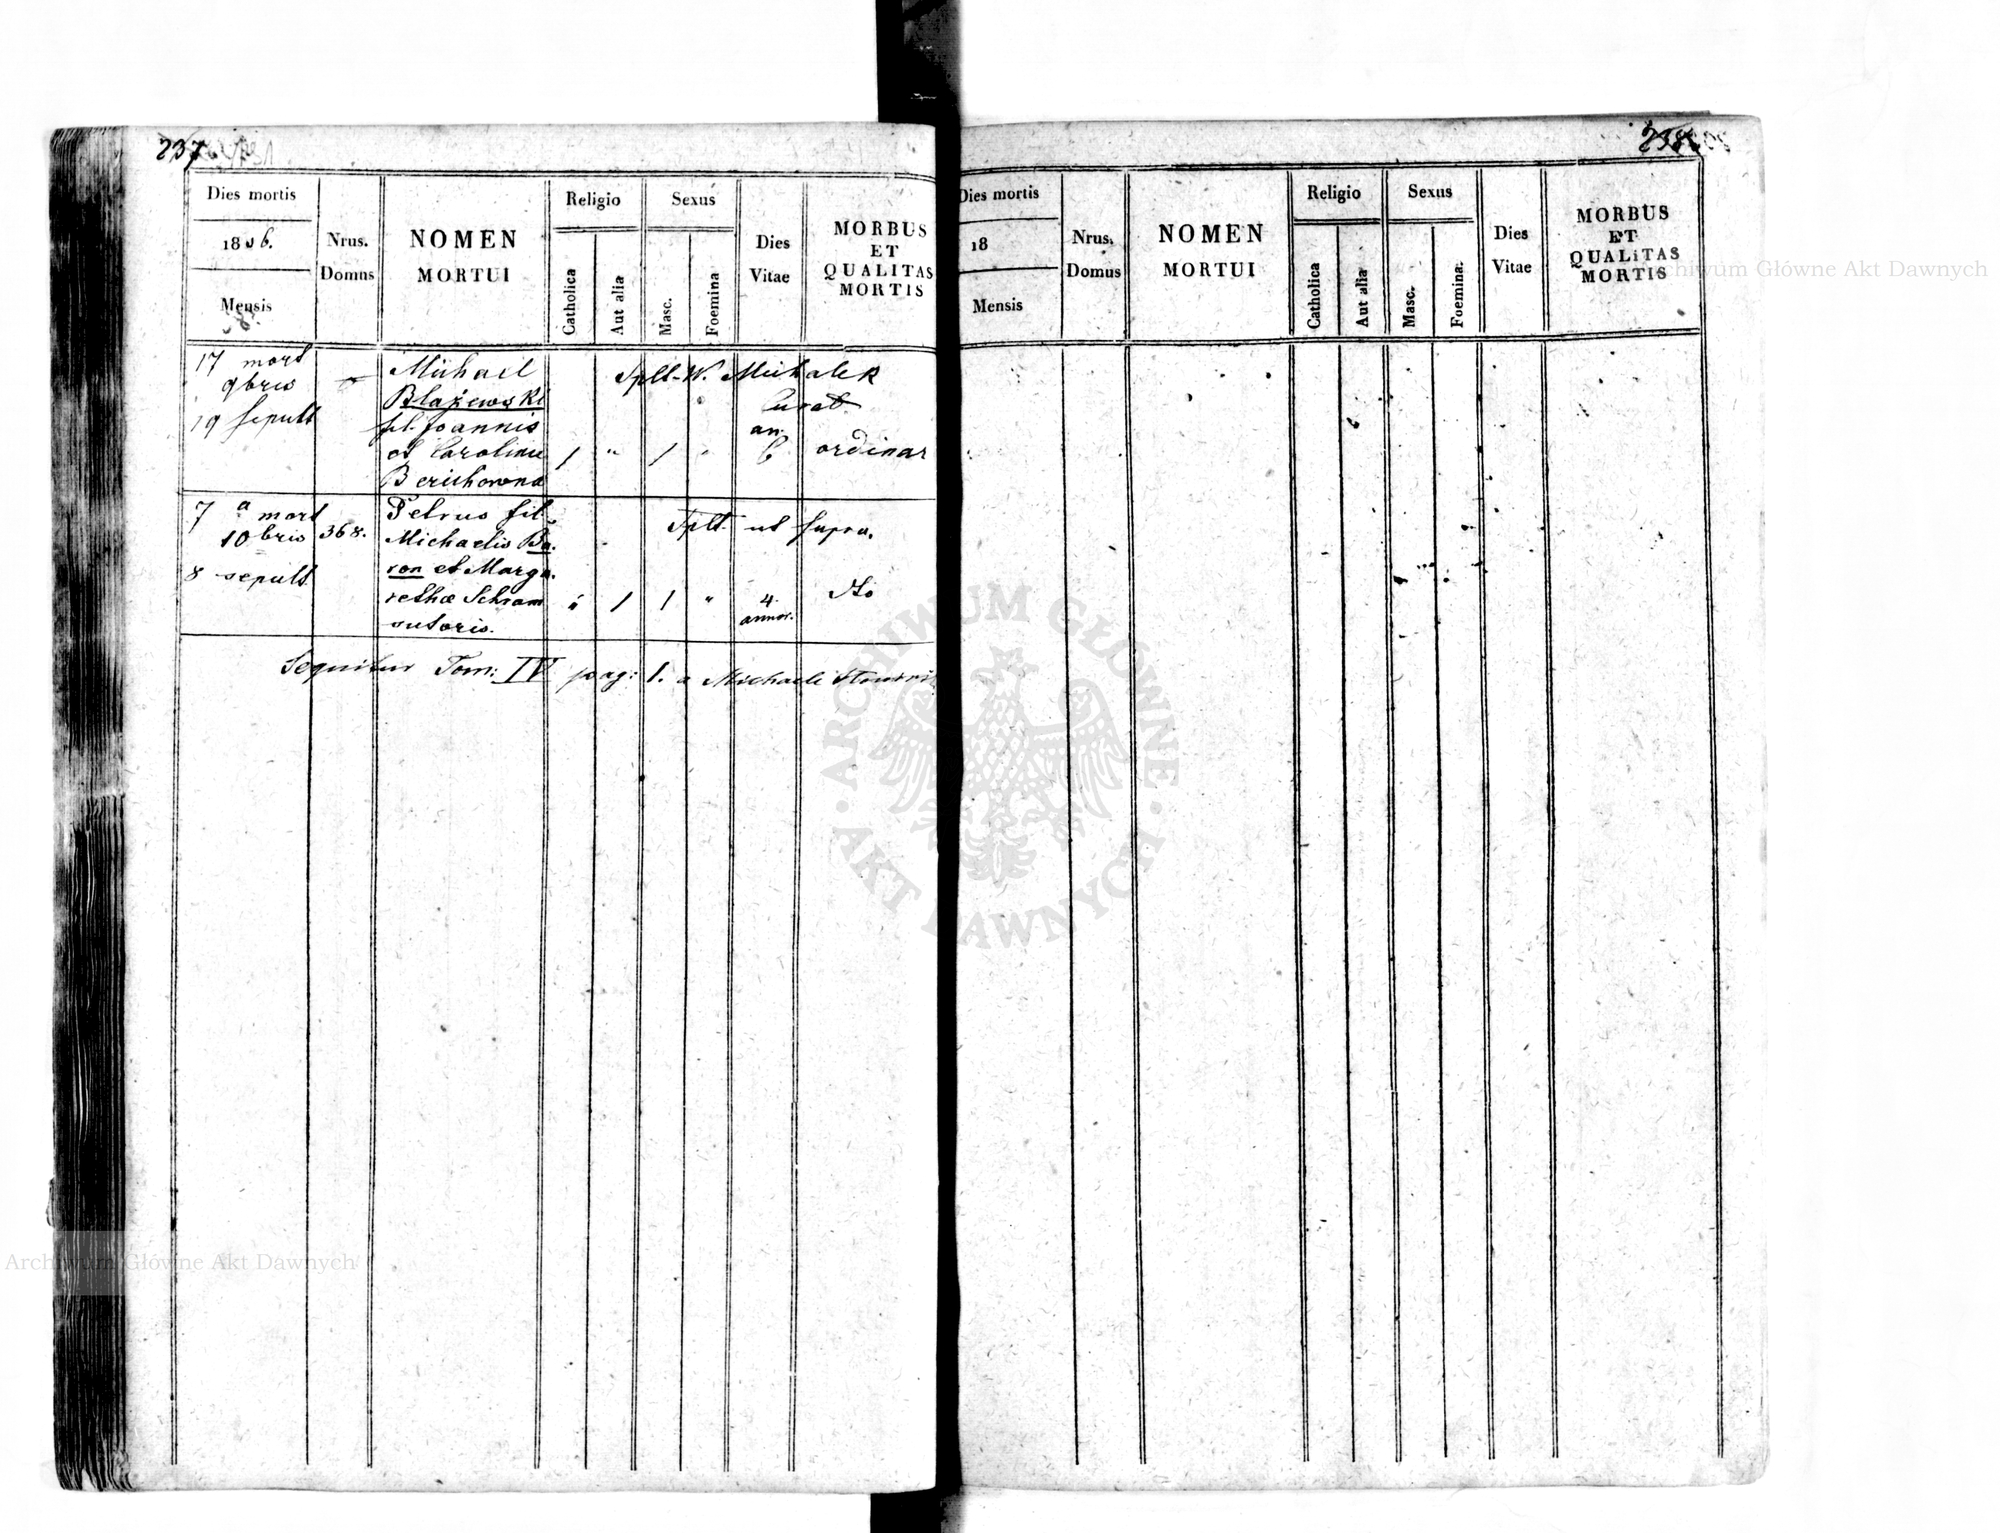 237
Dies mortis
Nrus. Domus
NOMEN
MORTUI
Religio
Catholica
Aut alia
Sexus
Masc.
Foemina
Dies
Vitae
MORBUS
ET
QUALITAS
MORTIS
Mensis
17 mort
9bris
19 sepult
Michael
Błażewski
fil. Joannis
et Carolinae
1 " 1 "
6 ordinar
Splt. W. Michalek
Curat.
an.
7 a mort
10bris
8 sepult
368.
Petrus fil.
Michaelis Ba.
ron et Marga.
rethæ Schram
sutoris.
" 1 1 "
4.
annor.
Splt. ut supra.
Sequitur Tom: IV pag: 1. a Michaeli
238
Dies mortis
18
Mensis
Nrus.
Domus
NOMEN
MORTUI
Religio
Catholica
Aut alia
Sexus
Masc.
Foemina.
Dies
Vitae
MORBUS
ET
QUALITAS
MORTIS
Archiwum Główne Akt Dawnych
ARCHIWUM GŁÓWNE
AKT DAWNYCH
Archiwum Główne Akt Dawnych